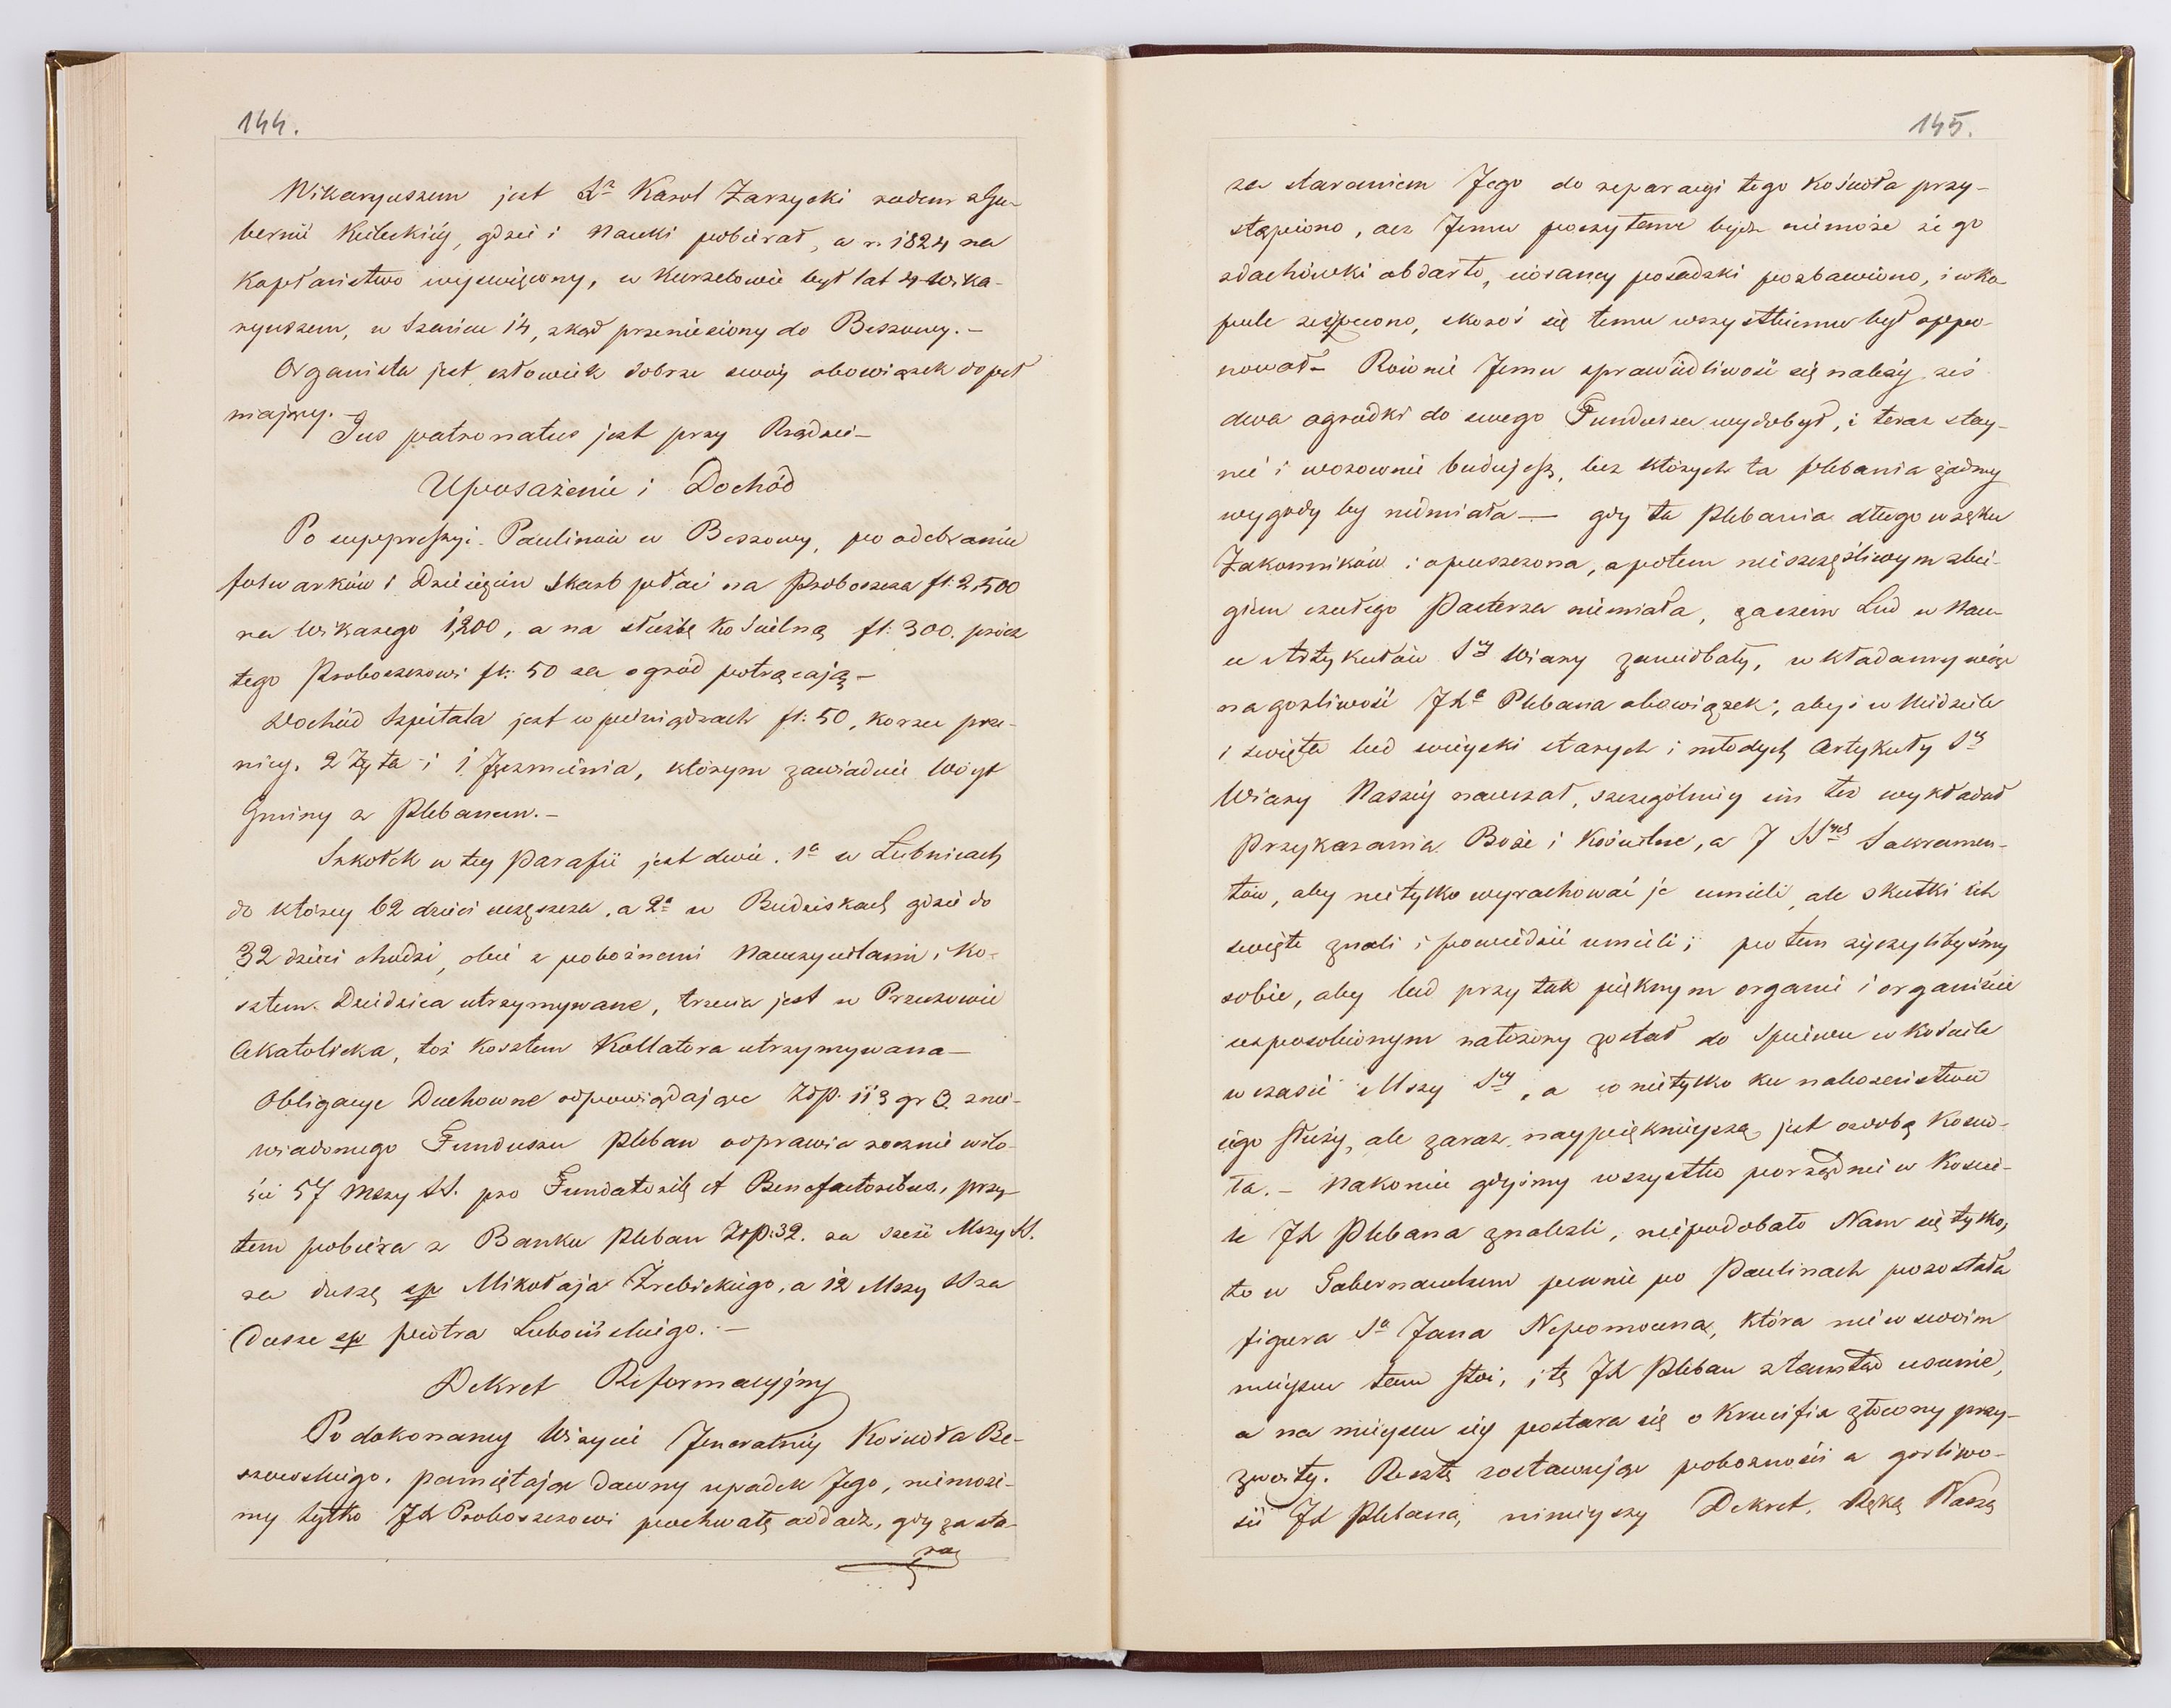 144.
Wikaryuszem jest Xᵃ Karol Zarzycki rodem z Gu-
bernii Kieleckiéy, gdzie i Nauki pobierał, a r. 1824 na
Kapłaństwo wyswięcony, w Kurzelowie był lat 4 Wika-
ryuszem, w Szańcu 14, zkąd przeniesiony do Beszowy. –
Organista jest człowiek dobrze swóy obowiązek dopeł
niający. –
Jus patronatus jest przy Rządzie –
Uposażenie i Dochód
Po suppressyi Paulinów w Beszowy, po odebraniu
folwarków i Dziesięcin Skarb płaci na Proboszcza fl: 2,500
na Wikarego 1,200, a na służbę Kościelną fl: 300. prócz
tego Proboszczowi fl: 50 za ogród potrącają –
Dochód Szpitala jest w pieniądzach fl: 50, korzec psze-
nicy, 2 Żyta i 1 Jęczmienia, którym zawiaduie Wóyt
Gminy z Plebanem. –
Szkółek w tey Parafii jest dwie. 1ᵃ w Łubnicach
do którey 62 dzieci uczęszcza, a 2ᵃ w Budziskach gdzie do
32 dzieci chodzi, obie z pobożnemi Nauczycielami, Ko-
sztem Dziedzica utrzymywane, trzecia jest w Przeczowie
Akatolicka, toż Kosztem Kollatora utrzymywana –
Obligacye Duchowne odpowiadające Złp. 113 gr 3. z nie-
wiadomego Funduszu Pleban odprawia rocznie w ilo-
ści 57 Mszy SS. pro Fundatorib et Benefactoribus, przy-
tem pobiera z Banku Pleban Złp: 32. za sześć Mszy SS.
za duszę śp Mikołaja Zrebickiego, a 12 Mszy SS za
Dusze śp Piotra Lubońskiego. –
Dekret Reformacyjny
Po dokonaney Wizycie Jeneralnéy Kościoła Be-
szowskiego, pamiętając dawny upadek Jego, niemoże-
my tylko JX Proboszczowi pochwałę oddać, gdy za sta-
ra
145.
za staraniem Jego do reparacyi tego Kościoła przy-
stąpiono, acz Jemu poczytane bydź niemoże że go
z dachówki obdarto, ciosaney posadzki pozbawiono, i w ko
pule zeszpecono, skoroś się temu wszystkiemu był oppo-
nował – Rownie Jemu sprawiedliwość się należy, żeś
dwa ogródki do swego Funduszu wydobył, i teraz stay-
nie i wozownie budujesz, bez których ta Plebania żadney
wygody by niemiała — gdy ta Plebania długo w ręku
Zakonników i opuszczona, a potem nieszczęśliwym zbie-
giem czułego Pasterza niemiała, zaczem Lud w Nau-
ce Artykułów Sᵉʸ Wiary zaniedbały, wkładamy więc
na gorliwość JXᵃ Plebana obowiązek, aby i w Niedziele
i święta lud wieyski starych i młodych Artykuły Sᵉʸ
Wiary Naszéy nauczał, szczególniey im też wykładał
Przykazania Boże i Kościelne, a 7 SSʸᶜʰ Sakramen-
tów, aby nietylko wyrachować je umieli, ale skutki ich
swięte znali i powiedzić umieli; po tem życzylibyśmy
sobie, aby lud przy tak pięknym organie i organiscie
usposobionym nałożony został do Spiewu w Kościele
w czasie Mszy Sᵉʸ, a co nietylko ku nabożeństwu
iego służy, ale zaraz naypięknieyszą jest ozdobą Kościo-
ła. – Nakoniec gdyśmy wszystko porządnie w Koscie-
le JX Plebana znalezli, niepodobało Nam się tylko,
to w Tabernaculum pewnie po Paulinach pozostała
figura Sᵃ Jana Nepomucena, która nie w swoim
mieyscu tam stoi, i tę JX Pleban z tamtąd usunie,
a na mieyscu iey postara się o Krucifix złocony przy-
zwoity. Resztę zostawując pobożności a gorliwo-
ści JX Plebana, ninieyszy Dekret Ręką Naszą